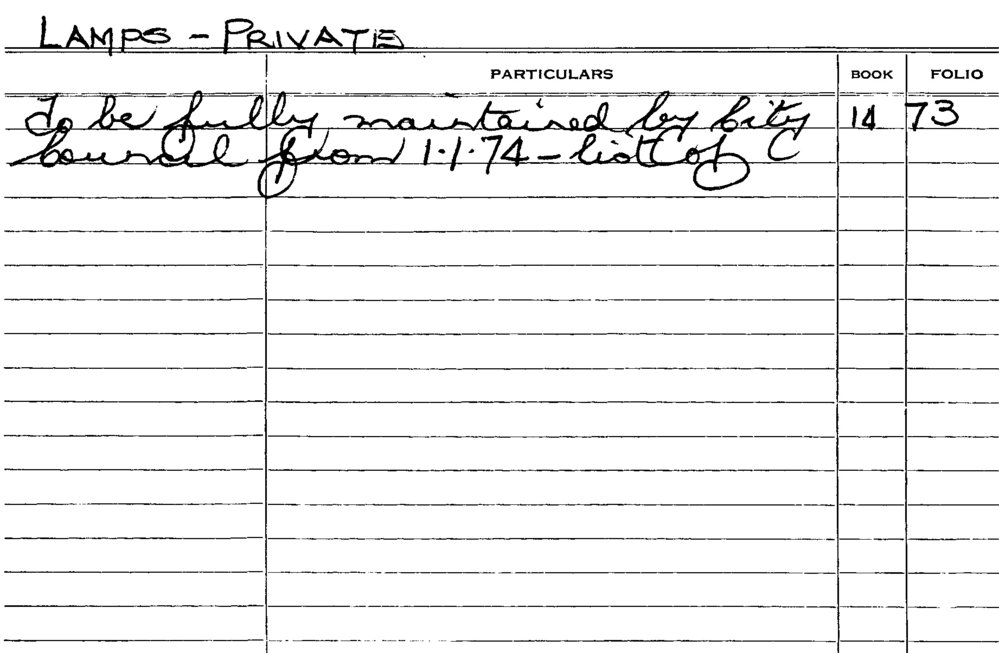 LAMPS - PRIVATE
PARTICULARS BOOK FOLIO
To be fully maintained by City 14 73
Council from 1.1.74 - list of C